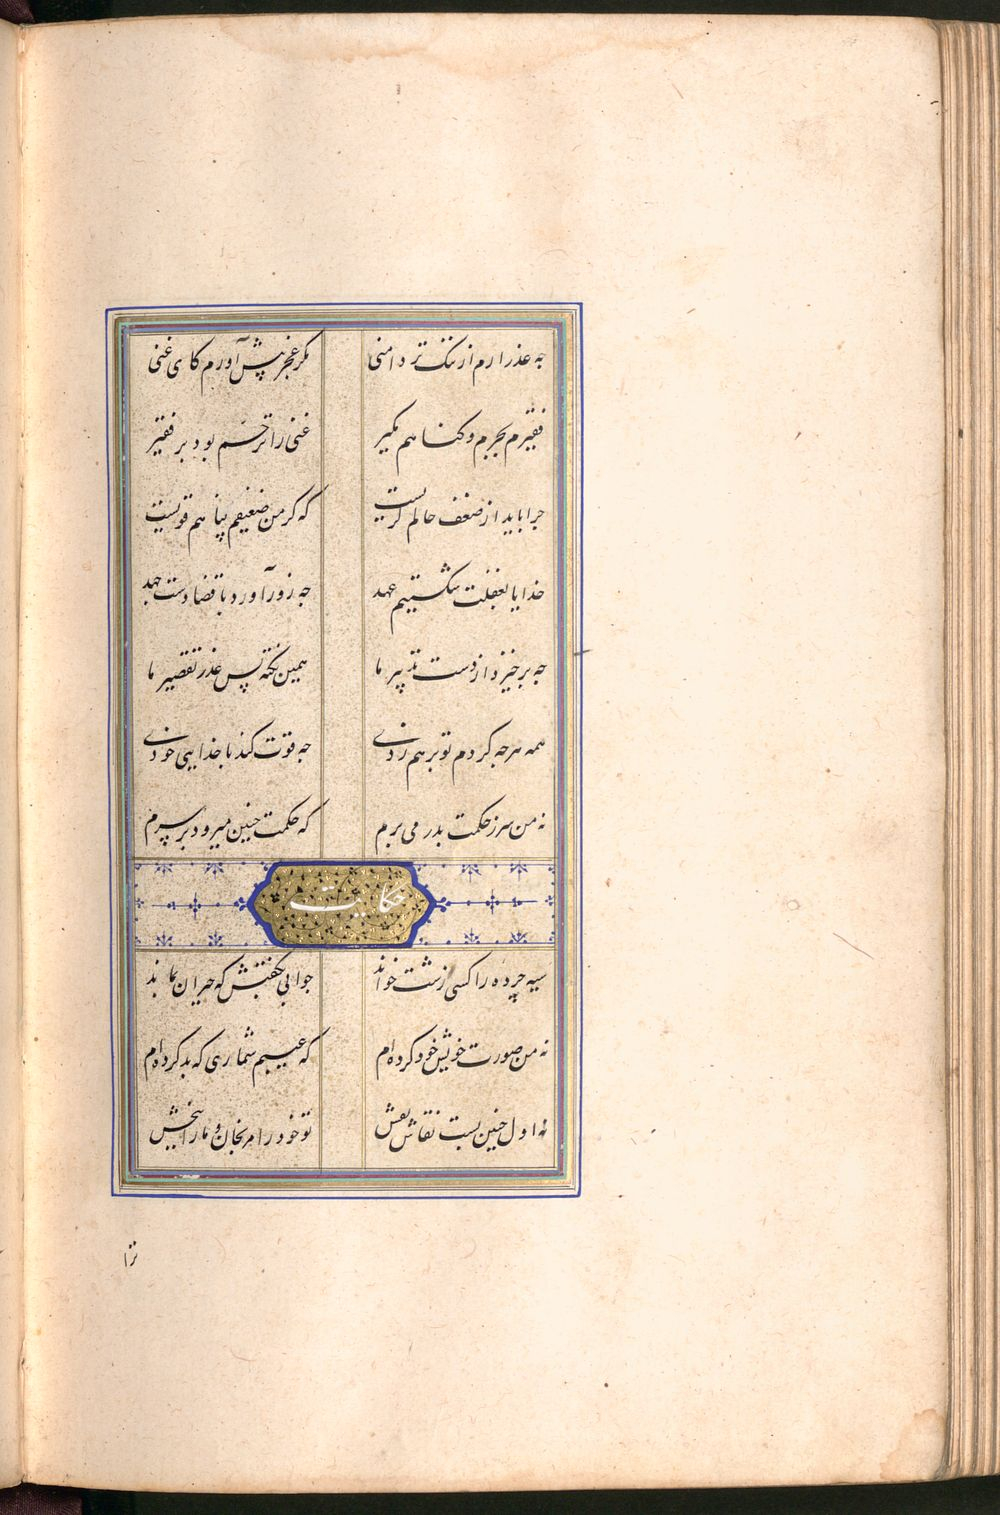 چه عذر ارم از ننک تر دامنی مکر عجز پیش آورم کای غنی
فقیرم بجرم و کناهم مکیر غنی را ترحم بود بر فقیر
چرا باید از ضعف حالم کریست که کر من ضعیفم پناهم قویست
خدایا بغفلت شکستیم عهد چه زور آورد با قضا دست جهد
چه برخیزد از دست تدبیر ما همین نکته بس عذر تقصیر ما
همه هرچه کردم تو بر هم زدی چه قوت کند با خدایی خودی
نه من سر ز حکمت بدر می برم که حکمت چنین میرود بر سرم
حکایت
سیه چرده را کسی زشت خواند جوابی بکفتش که حیران بماند
نه من صورت خویش خود کرده ام که عیبم شماری که بد کرده ام
نه اول چنین بست نقاش نقش تو خود را مرنجان و ما را ببخش
ترا